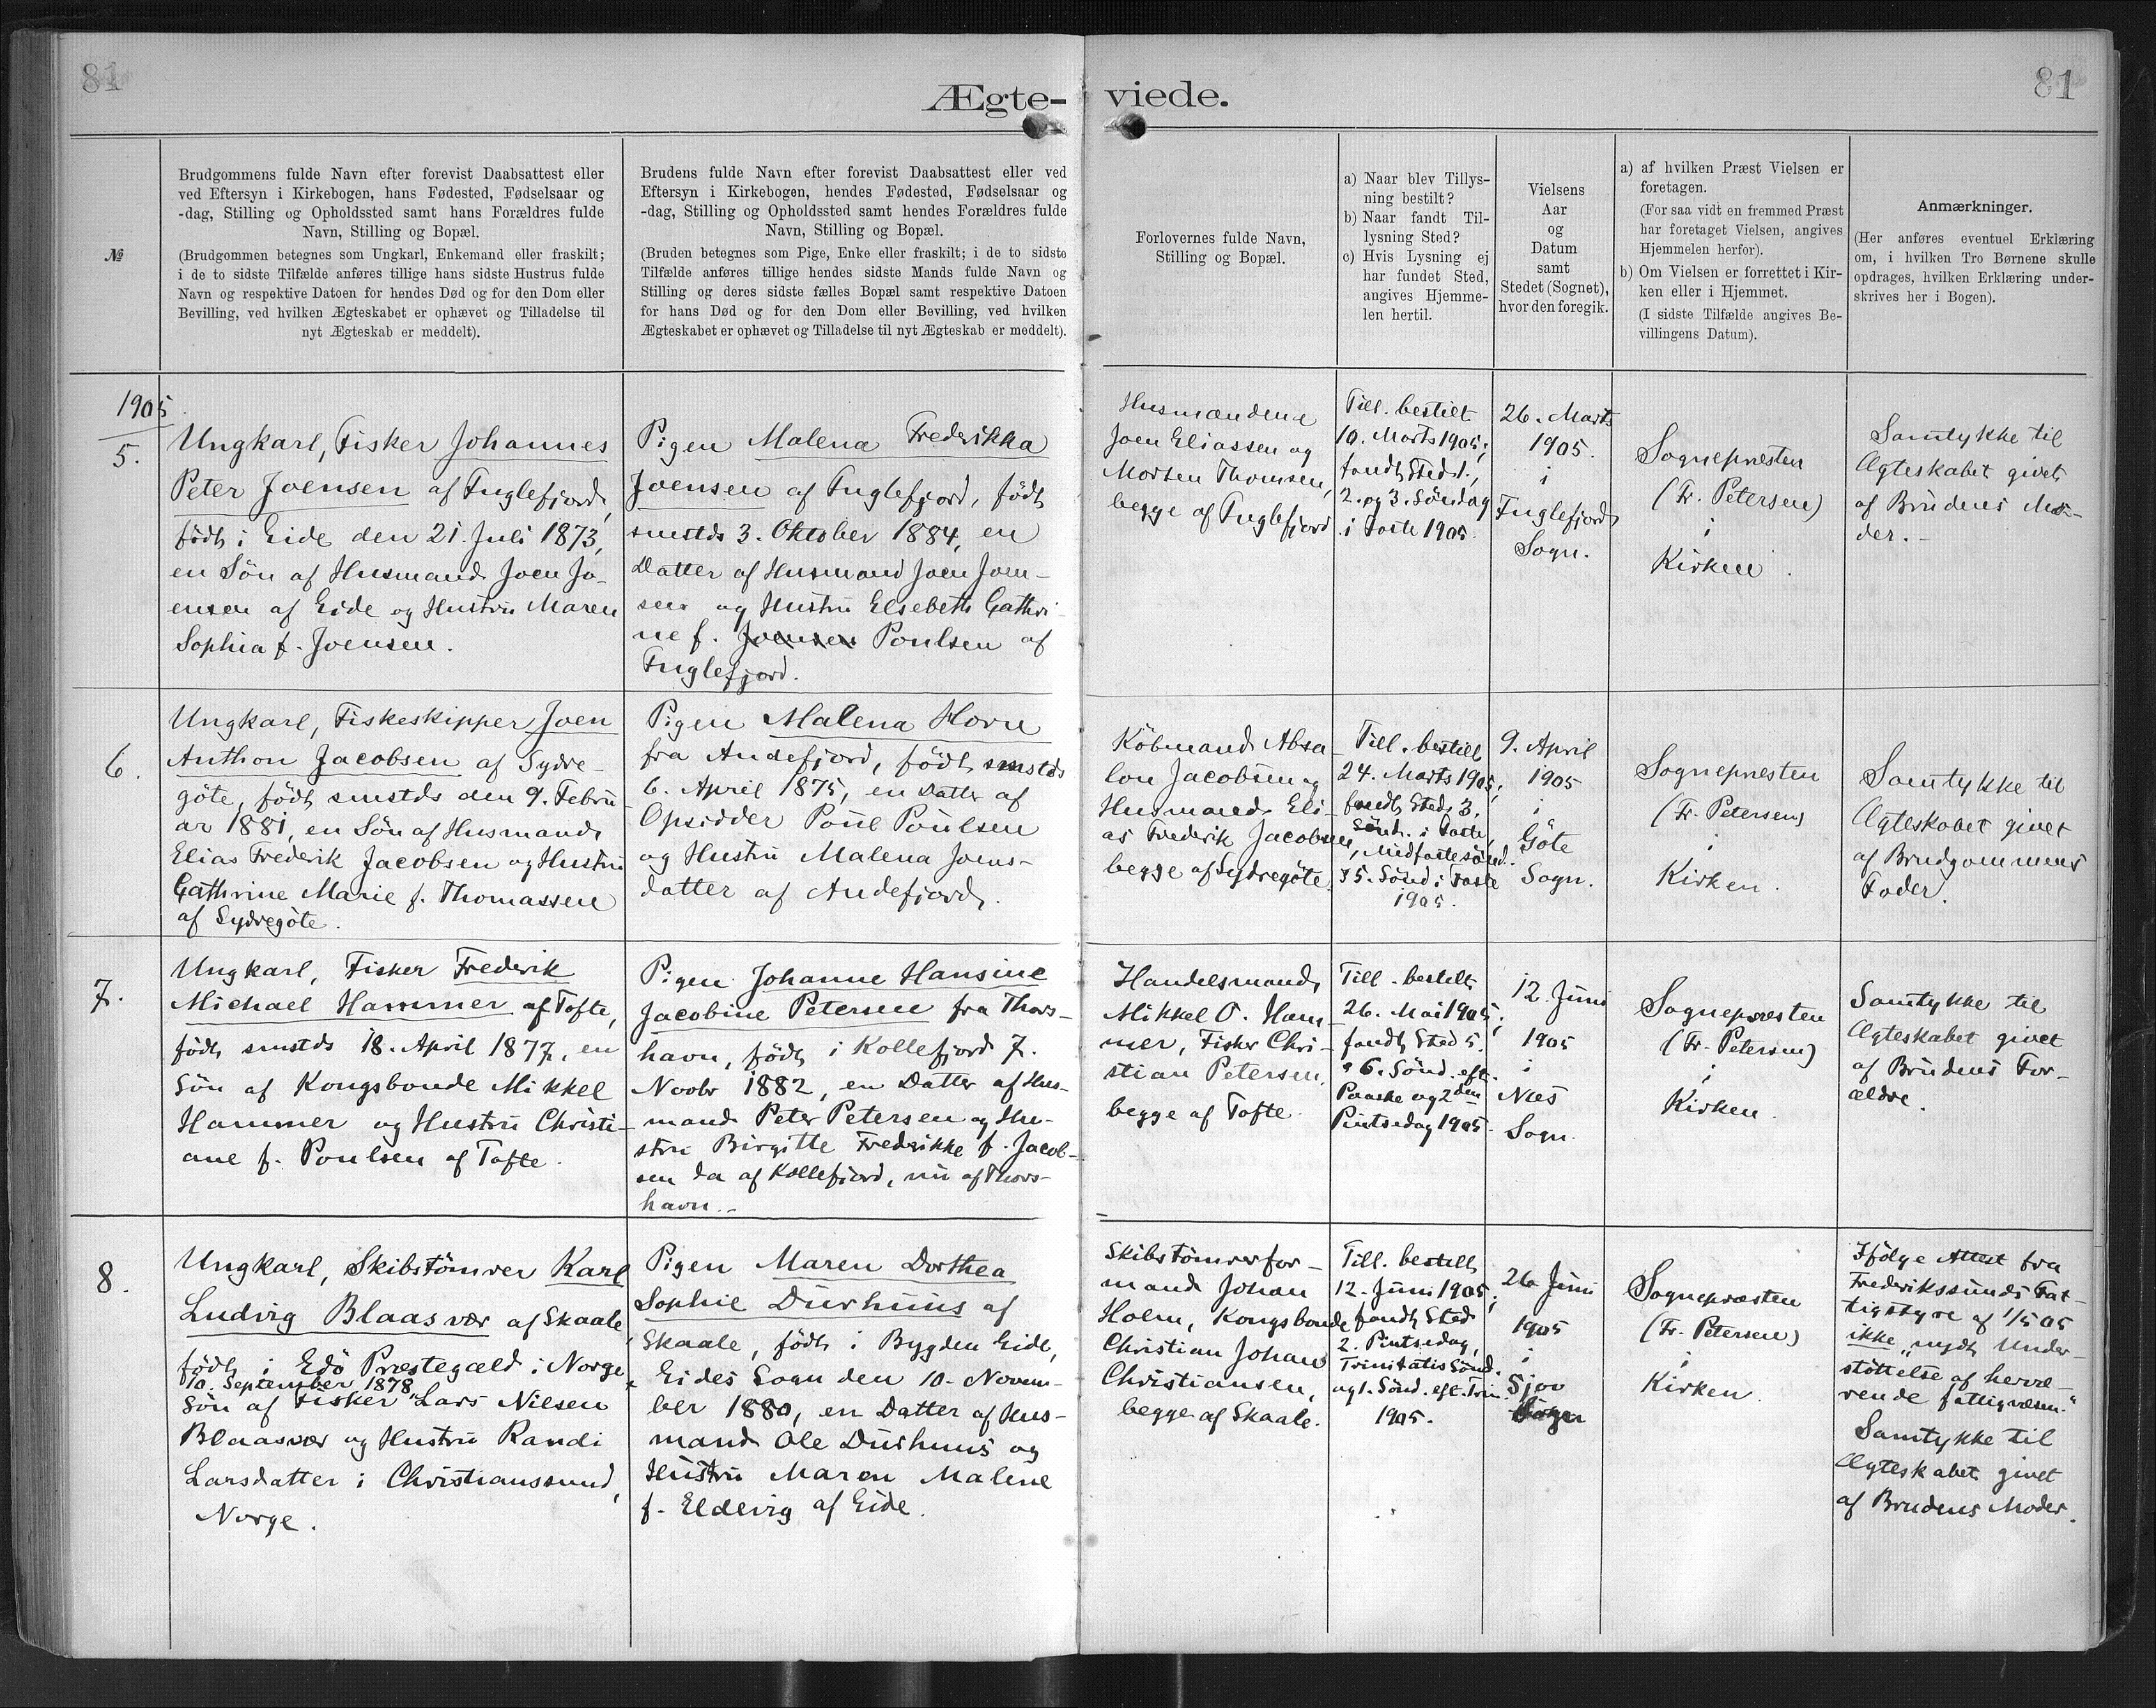 81
81
Ægte- viede.
№
Brudgommens fulde Navn efter forevist Daabsattest eller
ved Eftersyn i Kirkebogen, hans Fødested, Fødselsaar og
-dag, Stilling og Opholdssted samt hans Forældres fulde
Navn, Stilling og Bopæl.
(Brudgommen betegnes som Ungkarl, Enkemand eller fraskilt;
i de to sidste Tilfælde anføres tillige hans sidste Hustrus fulde
Navn og respektive Datoen for hendes Død og for den Dom eller
Bevilling, ved hvilken Ægteskabet er ophævet og Tilladelse til
nyt Ægteskab er meddelt).
Brudens fulde Navn efter forevist Daabsattest eller ved
Eftersyn i Kirkebogen, hendes Fødested, Fødselsaar og
-dag, Stilling og Opholdssted samt hendes Forældres fulde
Navn, Stilling og Bopæl.
(Bruden betegnes som Pige, Enke eller fraskilt; i de to sidste
Tilfælde anføres tillige hendes sidste Mands fulde Navn og
Stilling og deres sidste fælles Bopæl samt respektive Datoen
for hans Død og for den Dom eller Bevilling, ved hvilken
Ægteskabet er ophævet og Tilladelse til nyt Ægteskab er meddelt).
Forlovernes fulde Navn,
Stilling og Bopæl.
a) Naar blev Tillys-
ning bestilt?
b) Naar fandt Til-
lysning Sted?
c) Hvis Lysning ej
har fundet Sted,
angives Hjemme-
len hertil.
Vielsens
Aar
og
Datum
samt
Stedet (Sognet),
hvor den foregik.
a) af hvilken Præst Vielsen er
foretagen.
(For saa vidt en fremmed Præst
har foretaget Vielsen, angives
Hjemmelen herfor).
b) Om Vielsen er forrettet i Kir-
ken eller i Hjemmet.
(I sidste Tilfælde angives Be-
villingens Datum).
Anmærkninger.
(Her anføres eventuel Erklæring
om, i hvilken Tro Børnene skulle
opdrages, hvilken Erklæring under-
skrives her i Bogen).
1905
5.
Ungkarl, Fisker Johannes
Peter Joensen af Fuglefjord,
født i Eide den 21. Juli 1873,
en Søn af Husmand Joen Jo-
ensen af Eide og Hustru Maren
Sophia f. Joensen.
Pigen Malena Frederikka
Joensen af Fuglefjord, født
smstds 3. Oktober 1884, en
Datter af Husmand Joen Joen-
sen og Hustru Elsebeth Cathri-
ne f. Joensen Poulsen af
Fuglefjord.
Husmændene
Joen Eliassen og
Morten Thomsen,
begge af Fuglefjord
Till. bestilt
10. Marts 1905;
fandt Sted 1.,
2. og 3. Søndag
i Faste 1905.
26. Marts
1905.
i
Fuglefjord
Sogn.
Sognepræsten
(Fr. Petersen)
i
Kirken.
Samtykke til
Ægteskabet givet
af Brudens Mo-
der.-
6.
Ungkarl, Fiskeskipper Joen
Anthon Jacobsen af Sydre-
göte, født smstds den 9. Febru-
ar 1881, en Søn af Husmand
Elias Frederik Jacobsen og Hustru
Cathrine Marie f. Thomassen
af Sydregöte.
Pigen Malena Horn
fra Andefjord, født smstds
6. April 1875, en Datter af
Opsidder Poul Poulsen
og Hustru Malena Joens-
datter af Andefjord.
Købmand Absa-
lon Jacobsen og
Husmand Eli-
as Frederik Jacobsen,
begge af Sydregöte.
Till. bestilt
24. Marts 1905;
fandt Sted 3.
Sønd. i Faste,
Midfastesønd.
&5. Sønd i Faste
1905.
9. April
1905
i
Göte
Sogn.
Sognepræsten
(Fr. Petersen)
i
Kirken.
Samtykke til
Ægteskabet givet
af Brudgommens
Fader.
7.
Ungkarl, Fisker Frederik
Michael Hammer af Tofte,
født smstds 18. April 1877, en
Søn af Kongsbonde Mikkel
Hammer og Hustru Christi-
ane f. Poulsen af Tofte.
Pigen Johanne Hansine
Jacobine Petersen fra Thors-
havn, født i Kollefjord 7.
Novbr 1882, en Datter af Hus-
mand Peter Petersen og Hu-
stru Birgitte Fredrikke f. Jacob-
sen da af Kollefjord, nu af Thors-
havn.-
Handelsmand
Mikkel P. Ham-
mer, Fisker Chri-
stian Petersen,
begge af Tofte.
Till. bestilt
26. Mai 1905;
fandt Sted 5.
& 6. Sønd. eft.
Paaske og 2den
Pintsedag 1905.
12. Juni
1905
i
Næs
Sogn.
Sognepræsten
(Fr. Petersen)
i
Kirken.
Samtykke til
Ægteskabet givet
af Brudens For-
ældre.
8.
Ungkarl, Skibstömrer Karl
Ludvig Blaasvær af Skaale,
født i Edö Præstegæld i Norge
10. September 1878,
Søn af Fisker Lars Nilsen
Blaasvær og Hustru Randi
Larsdatter i Christianssund,
Norge.
Pigen Maren Dorthea
Sophie Durhuus af
Skaale, født i Bygden Eide,
Eides Sogn den 10. Novem-
ber 1880, en Datter af Hus-
mand Ole Durhuus og
Hustru Maren Malene
f. Eldevig af Eide.
Skibstömrerfor-
mand Johan
Holm, Kongsbonde
Christian Johan
Christiansen,
begge af Skaale.
Till. bestilt
12. Juni 1905;
fandt Sted
2. Pintsedag,
Trinitatis Sønd.
og 1. Sønd. eft. Trin.
1905.
26. Juni
1905
i
Sjov
Sogn
Sognepræsten
(Fr. Petersen)
i
Kirken.
Ifølge Attest fra
Frederikssunds Fat-
tigstyre af 1/5 05
ikke "nydt Under-
støttelse af herve-
rende fattigvæsen."
Samtykke til
Ægteskabet givet
af Brudens Moder.